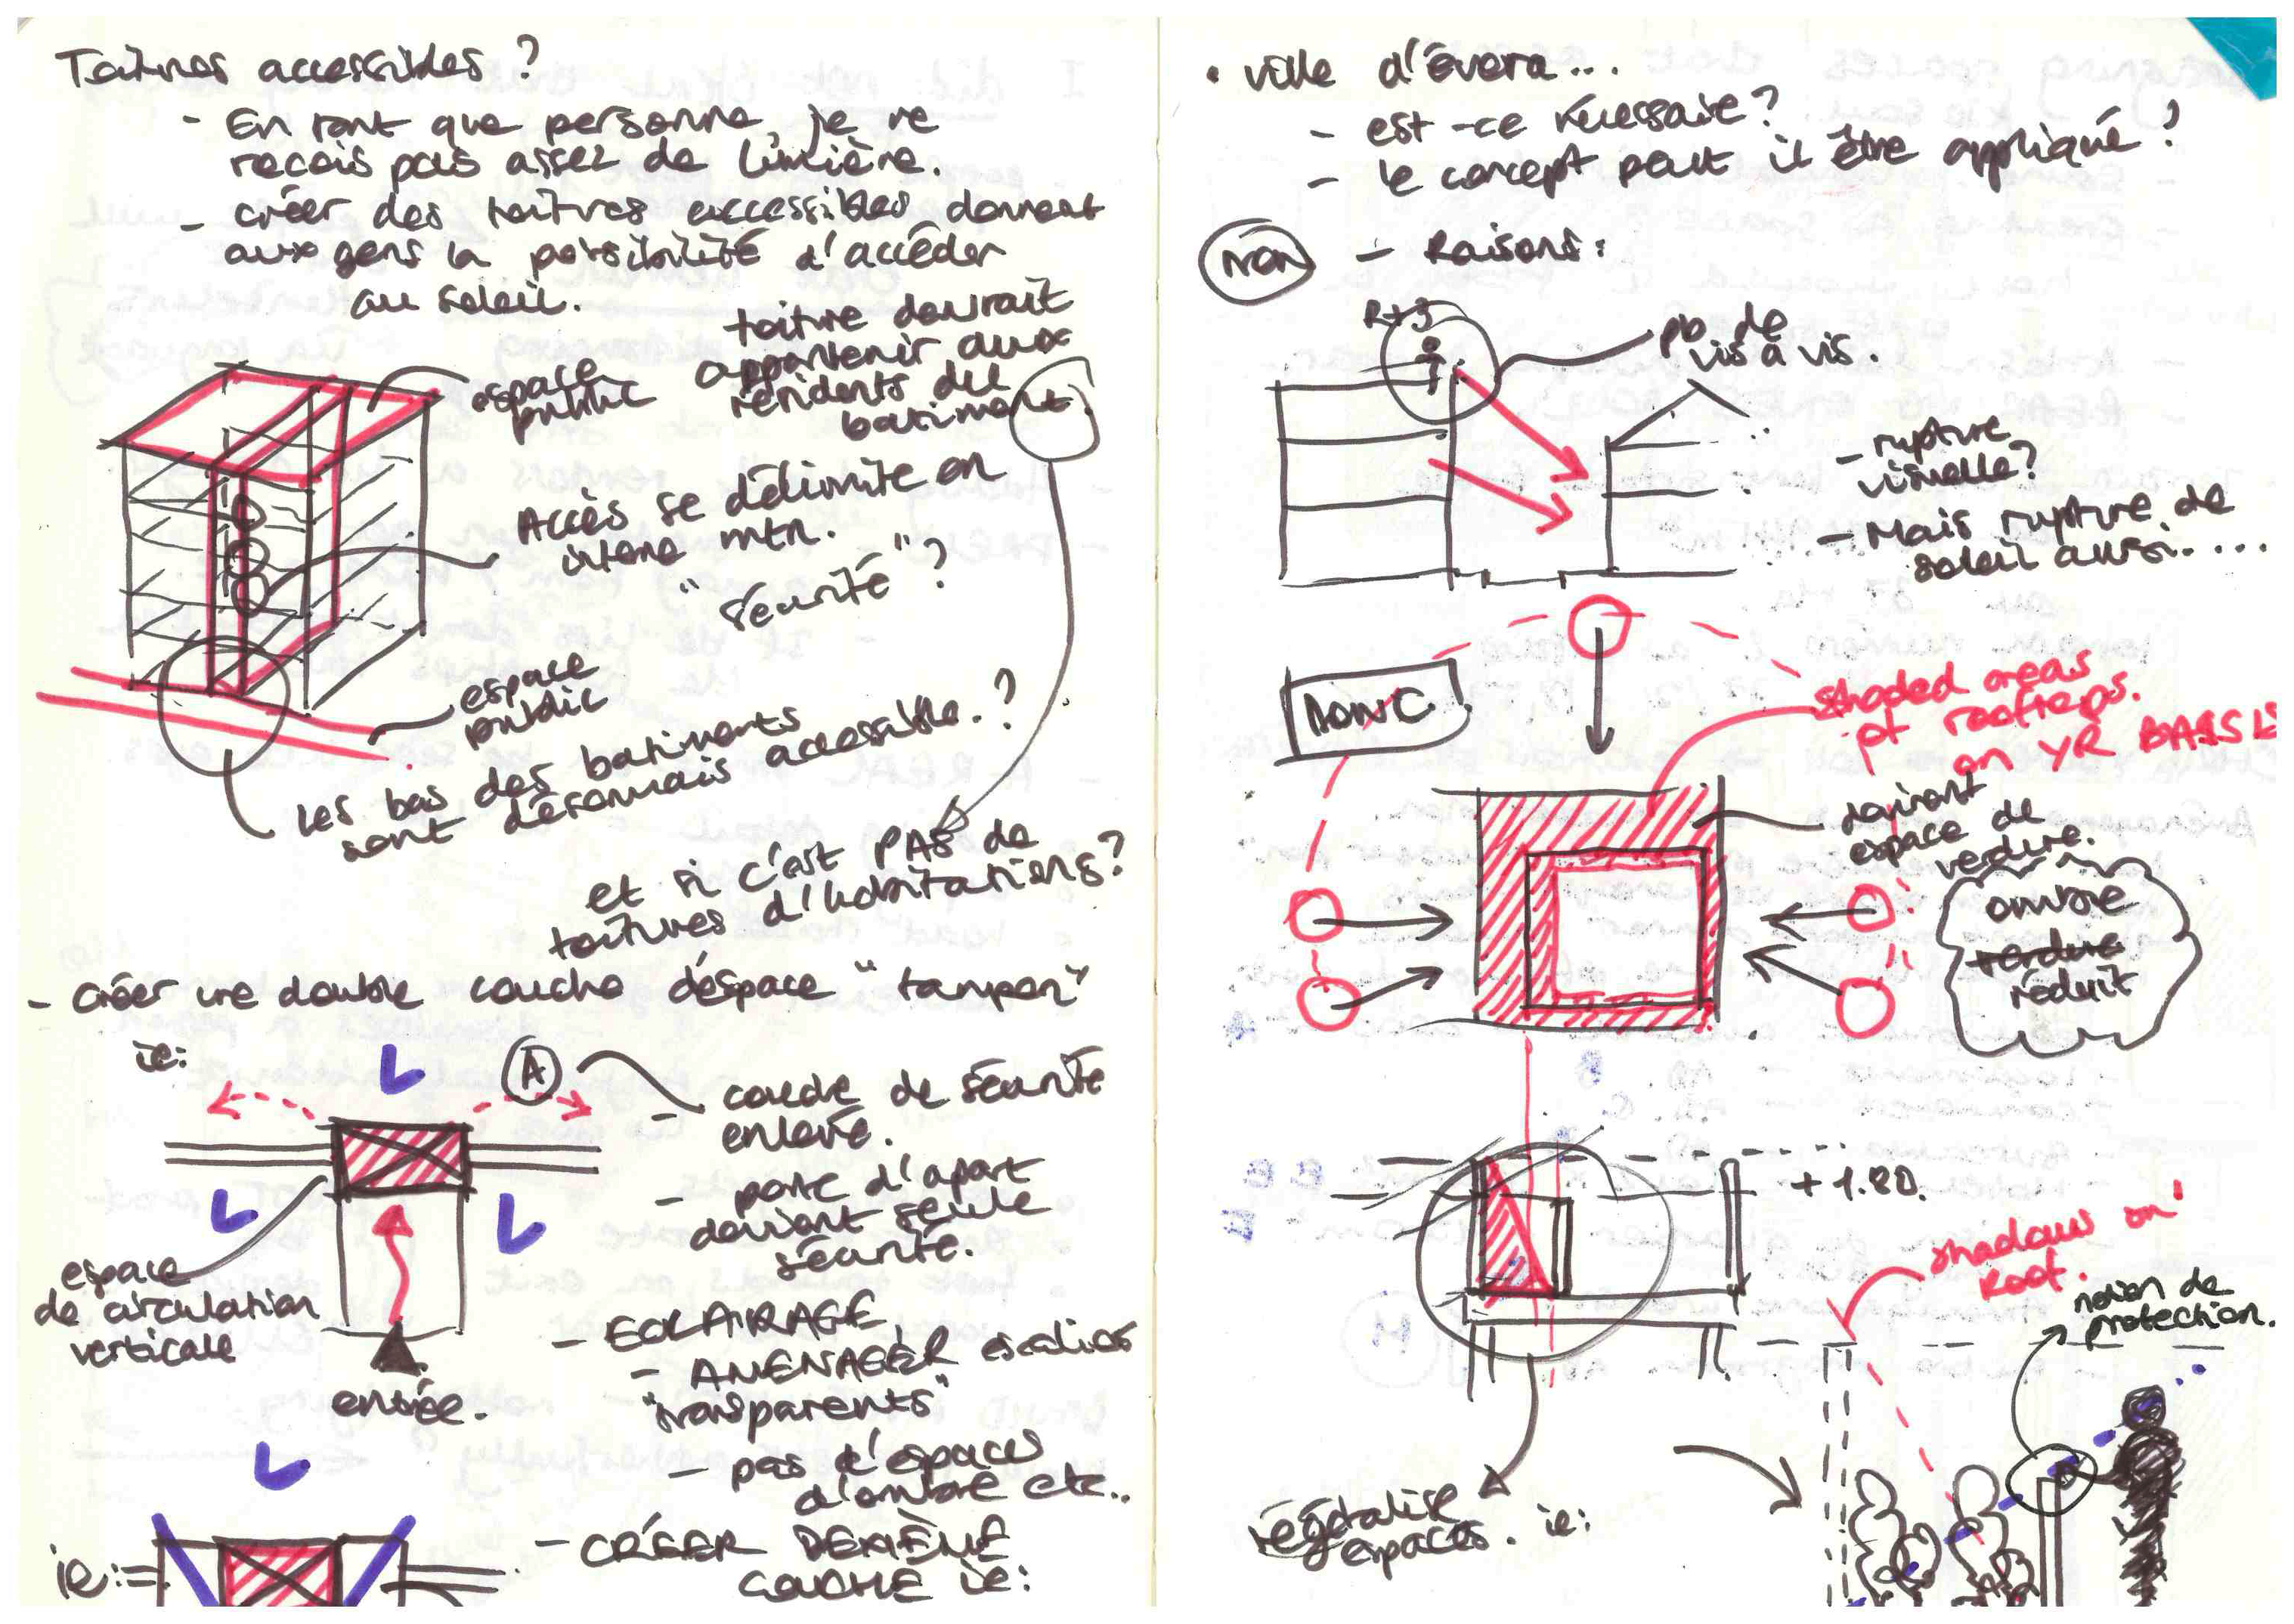 Toitures accessibles ?
- En tant que personne, je ne
reçois pas assez de lumière.
- créer des toitures accessibles donnent
aux gens la possibilité d'accéder
au soleil.
toiture devrait
appartenir aux
résidents du
batiment.
espace
public
Accès se délimite en
interne mtn.
"sécurité"?
espace
public
les bas des batiments
sont désormais accessible.?
et si c'est PAS de
toitures d'habitations?
- créer une double couche d'espace "tampon"
ie:
A
couche de sécurité
enlevé.
- porte d'apart
devient seule
sécurité.
espace
de circulation
verticale
entrée.
- ECLAIRAGE
- AMENAGER escaliers
"transparents"
- pas d'espaces
d'ombre etc..
- CRÉER DEXIÈME
COUCHE ie:
ie:
• ville d'évora...
- est-ce nécessaire?
- le concept peut il être appliqué?
non - Raisons:
R+3
pb de
vis à vis.
- rupture
visuelle?
- Mais rupture de
soleil aussi....
DONC
shaded areas
of rooftops.
on YR BASIS
espace de
verdure.
ombre
verdure
réduit
+ 1.80.
shadows on
roof.
notion de
protection.
espaces. ie: